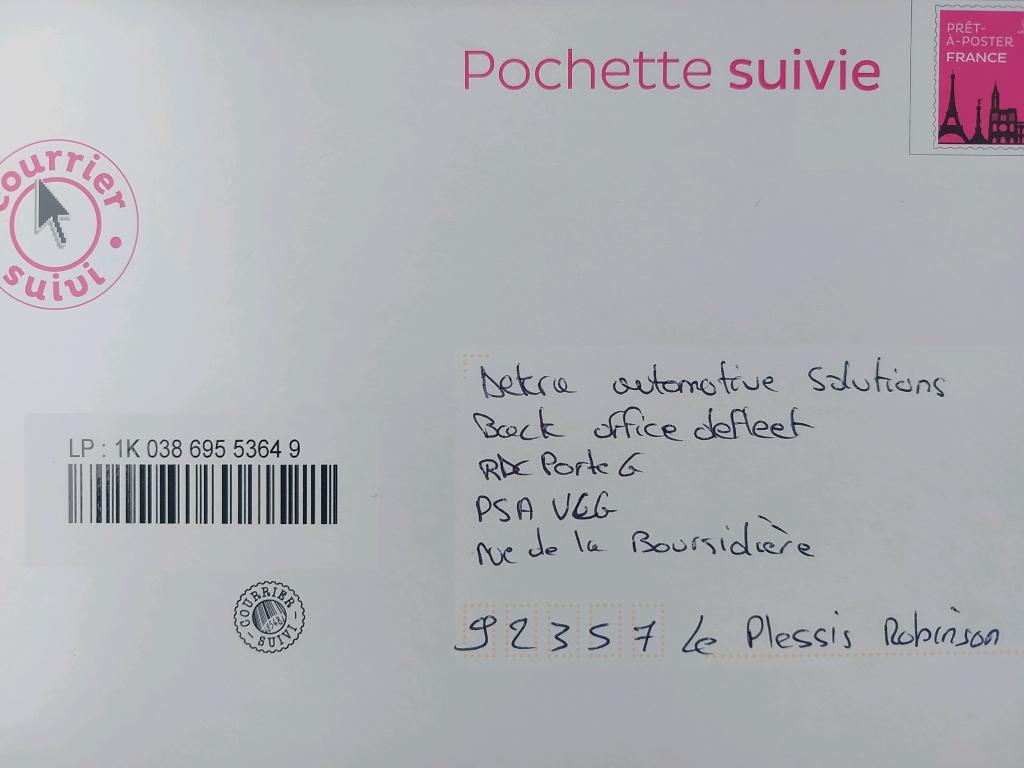 Pochette suivie
PRÊT-
À-POSTER
FRANCE
courrier
suivi
Dekra automotive Solutions
Back office defleet
LP : 1K 038 695 5364 9
RDC Porte G
PSA VGG
rue de la Boursidière
COURRIER
SUIVI
92357 Le Plessis Robinson